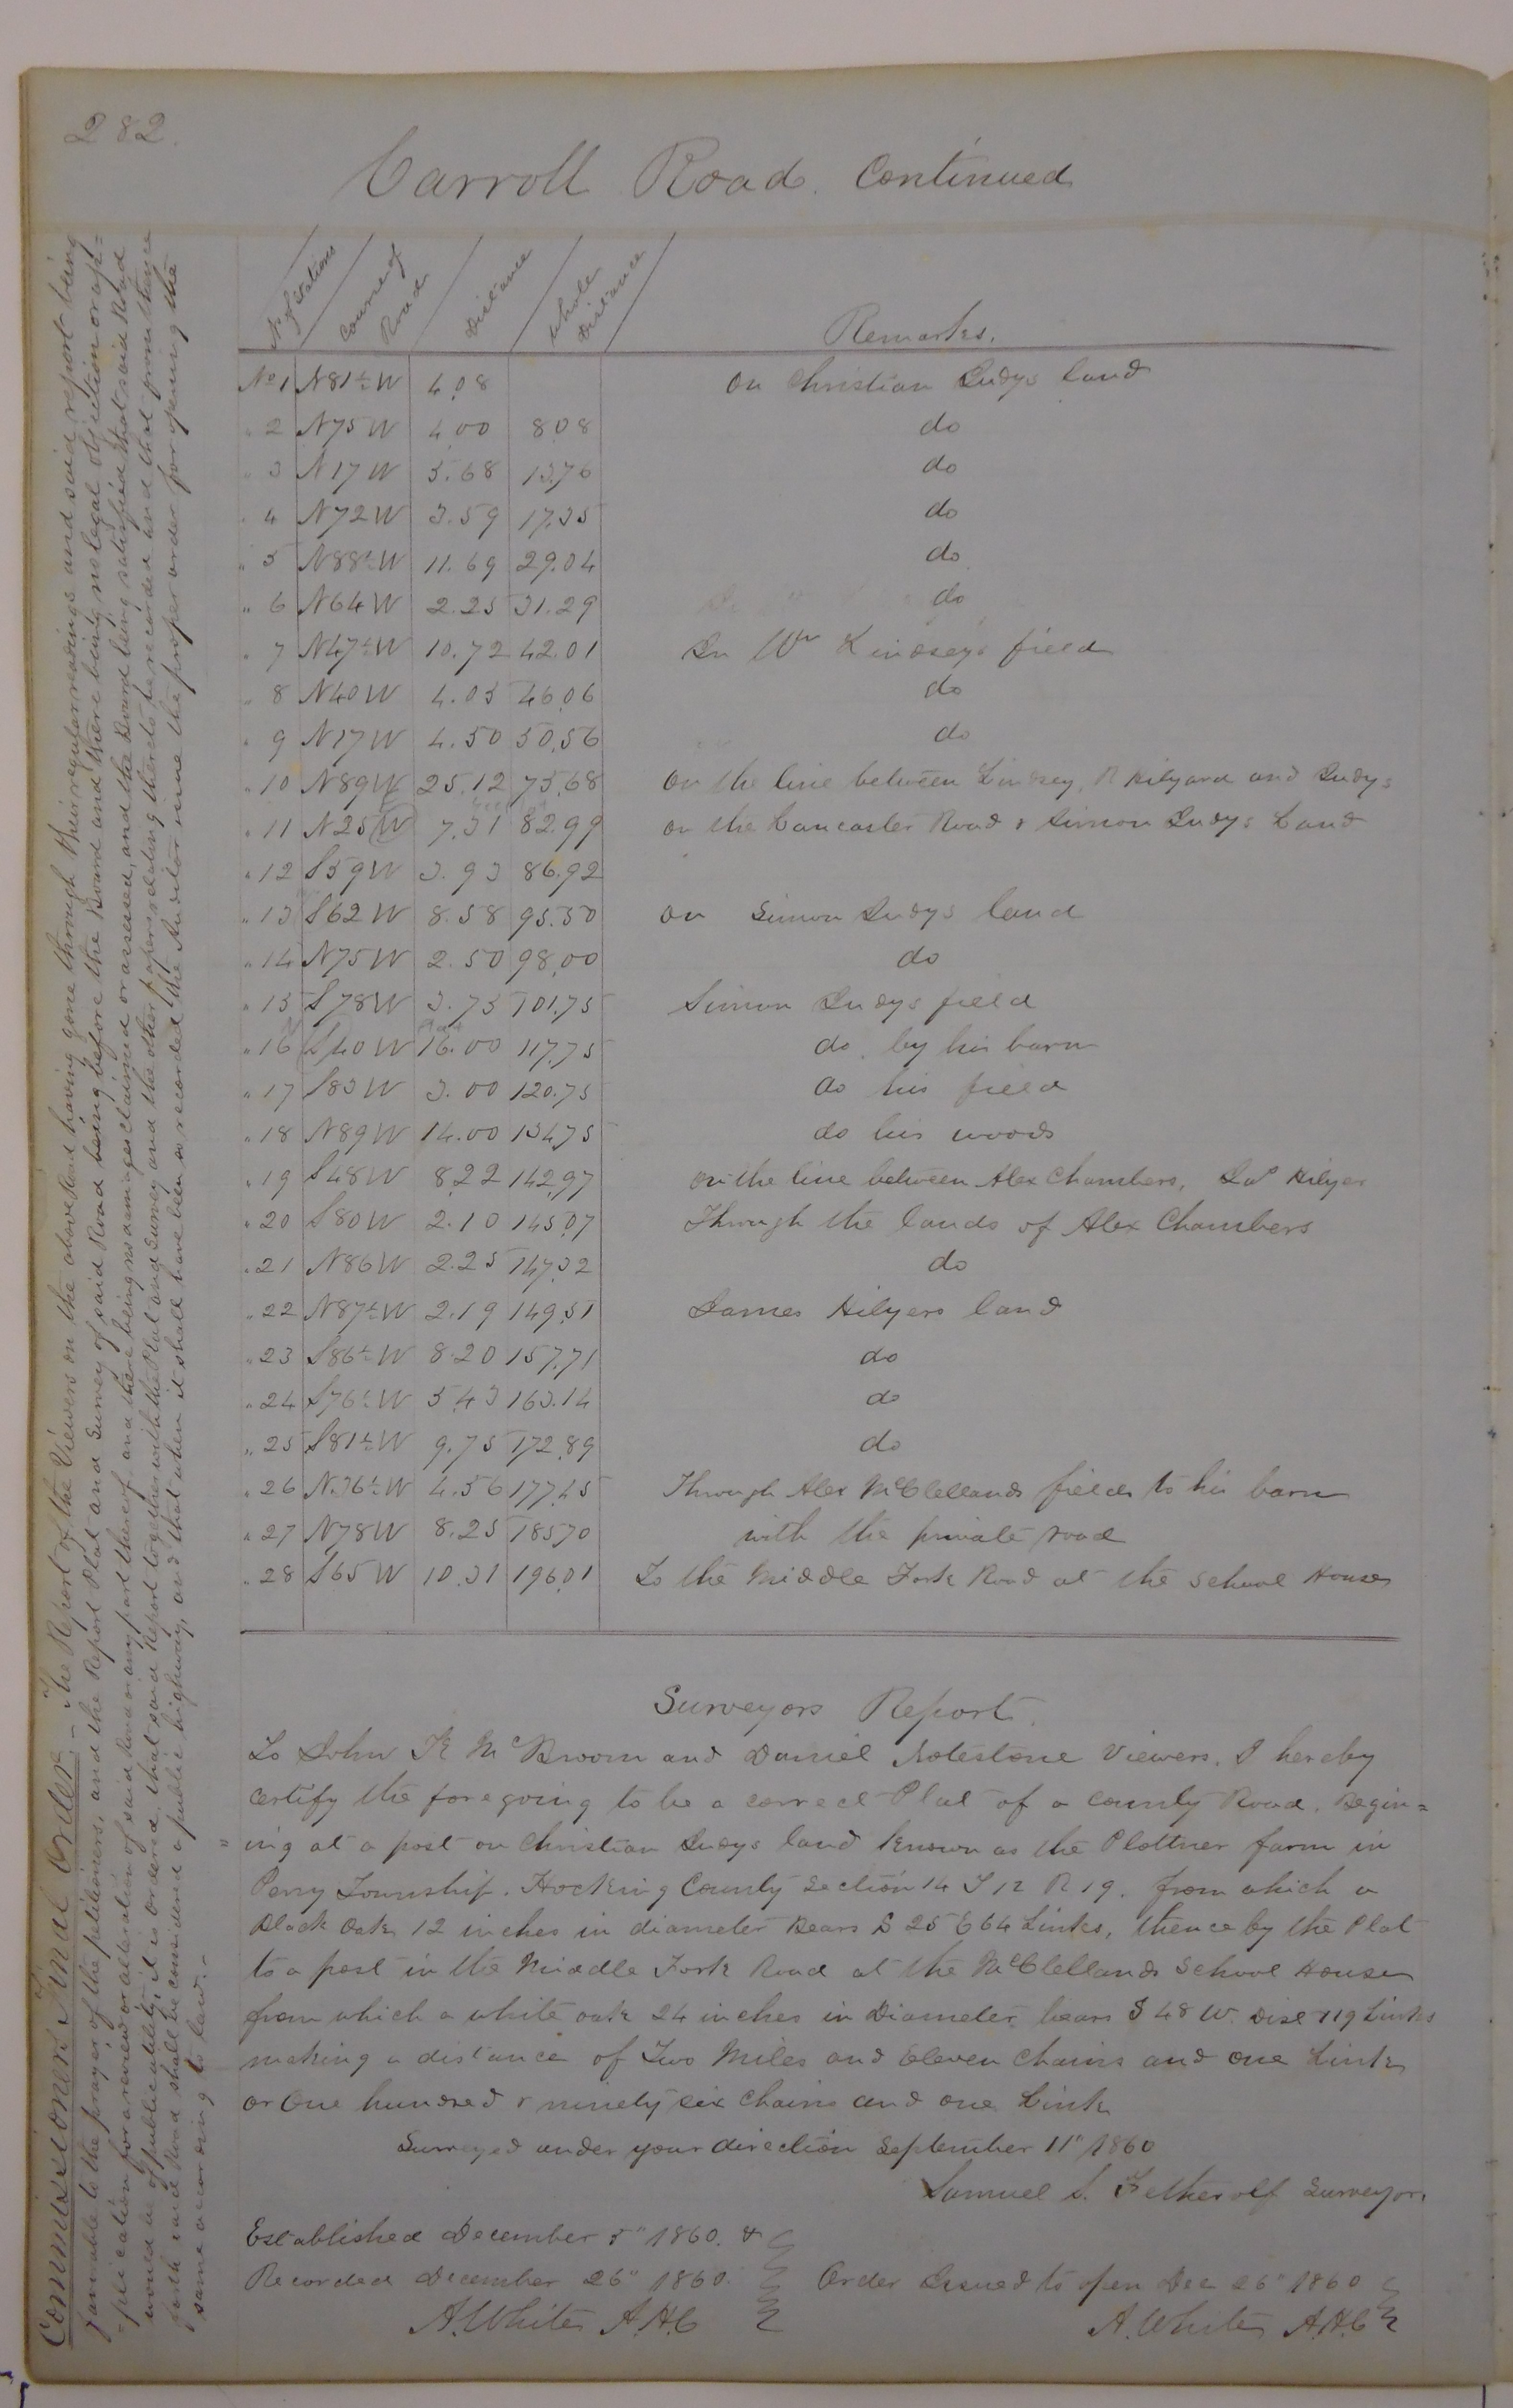 282.
Carroll Road. Continued
No of Stations | Course of Road | Distance | Whole Distance | Remarks.
No 1 N81½W 4.08 on Christian Judys land
" 2 N75W 4.00 8.08 do
" 3 N17W 5.68 13.76 do
" 4 N72W 3.59 17.35 do
" 5 N88½W 11.69 29.04 do
" 6 N64W 2.25 31.29 do
" 7 N47½W 10.72 42.01 In Wm Lindseys field
" 8 N40W 4.05 46.06 do
" 9 N17W 4.50 50.56 do
" 10 N89W 25.12 75.68 on the line between Lindsey, R Hilyard and Judys
" 11 N25W 7.31 82.99 on the Lancaster Road & Simon Judys Land
" 12 S59W 3.93 86.92
" 13 S62W 8.58 95.50 on Simon Judys land
" 14 N75W 2.50 98.00 do
" 15 S78W 3.75 101.75 Simon Judys field
" 16 S40W 16.00 117.75 do. by his barn
" 17 S83W 3.00 120.75 do his field
" 18 N89W 14.00 134.75 do his woods
" 19 S48W 8.22 142.97 on the line between Alex Chambers, Jas Hilyer
" 20 S80W 2.10 145.07 Through the lands of Alex Chambers
" 21 N86W 2.25 147.32 do
" 22 N87½W 2.19 149.51 James Hilyers land
" 23 S86½W 8.20 157.71 do
" 24 S76½W 5.43 163.14 do
" 25 S81½W 9.75 172.89 do
" 26 N.36½W 4.56 177.45 Through Alex McClellands field to his barn
" 27 N78W 8.25 185.70 with the private road
" 28 S65W 10.31 196.01 To the Middle Fork Road at the School House
Surveyors Report.
To John K McBroom and Daniel Notestone Viewers. I hereby
certify the foregoing to be a correct Plat of a County Road. Begin=
=ing at a post on Christian Judys land known as the Plattner farm in
Perry Township. Hocking County Section 14 T 12 R 19. from which a
Black Oak 12 inches in diameter Bears S 25 E 64 Links, thence by the Plat
to a post in the Middle Fork Road at the McClellands School House
from which a white oak 24 inches in Diameter bears S 48 W. Dist 119 Links
making a distance of Two Miles and Eleven Chains and one Link
or One hundred & ninety six Chains and one Link
Surveyed under your direction September 11" 1860
Samuel S. Fetherolf Surveyor.
Established December 5" 1860. &
Recorded December 26" 1860.
A. White A.H.C
Order Issued to open Dec 26" 1860
A. White A.H.C
Commissioners Final Order. – The Report of the Viewers on the above Road having gone through their regular readings and said report being
favorable to the prayer of the petitioners, and the Report Plat and Survey of said Road being before the Board and there being no legal objection or ap=
=plication for a review or alteration of said Road or any part thereof, and there being no damages claimed or assessed, and the Board being satisfied that said Road
would be of public utility, it is ordered, that said Report together with the Plat and Survey and the other papers relating thereto be recorded and that from thence
forth said Road shall be considered a public highway, and that when it shall have been so recorded the Auditor issue the proper order for opening the
same according to law. –